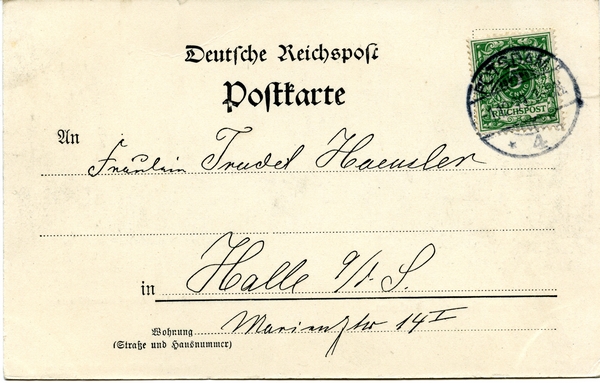 Deutsche Reichspost
Postkarte
POTSDAM
5
REICHSPOST
* 4
An Fräulein Trudel Haensler
in Halle a/d. S.
Wohnung Marienstr 14 I
(Straße und Hausnummer)